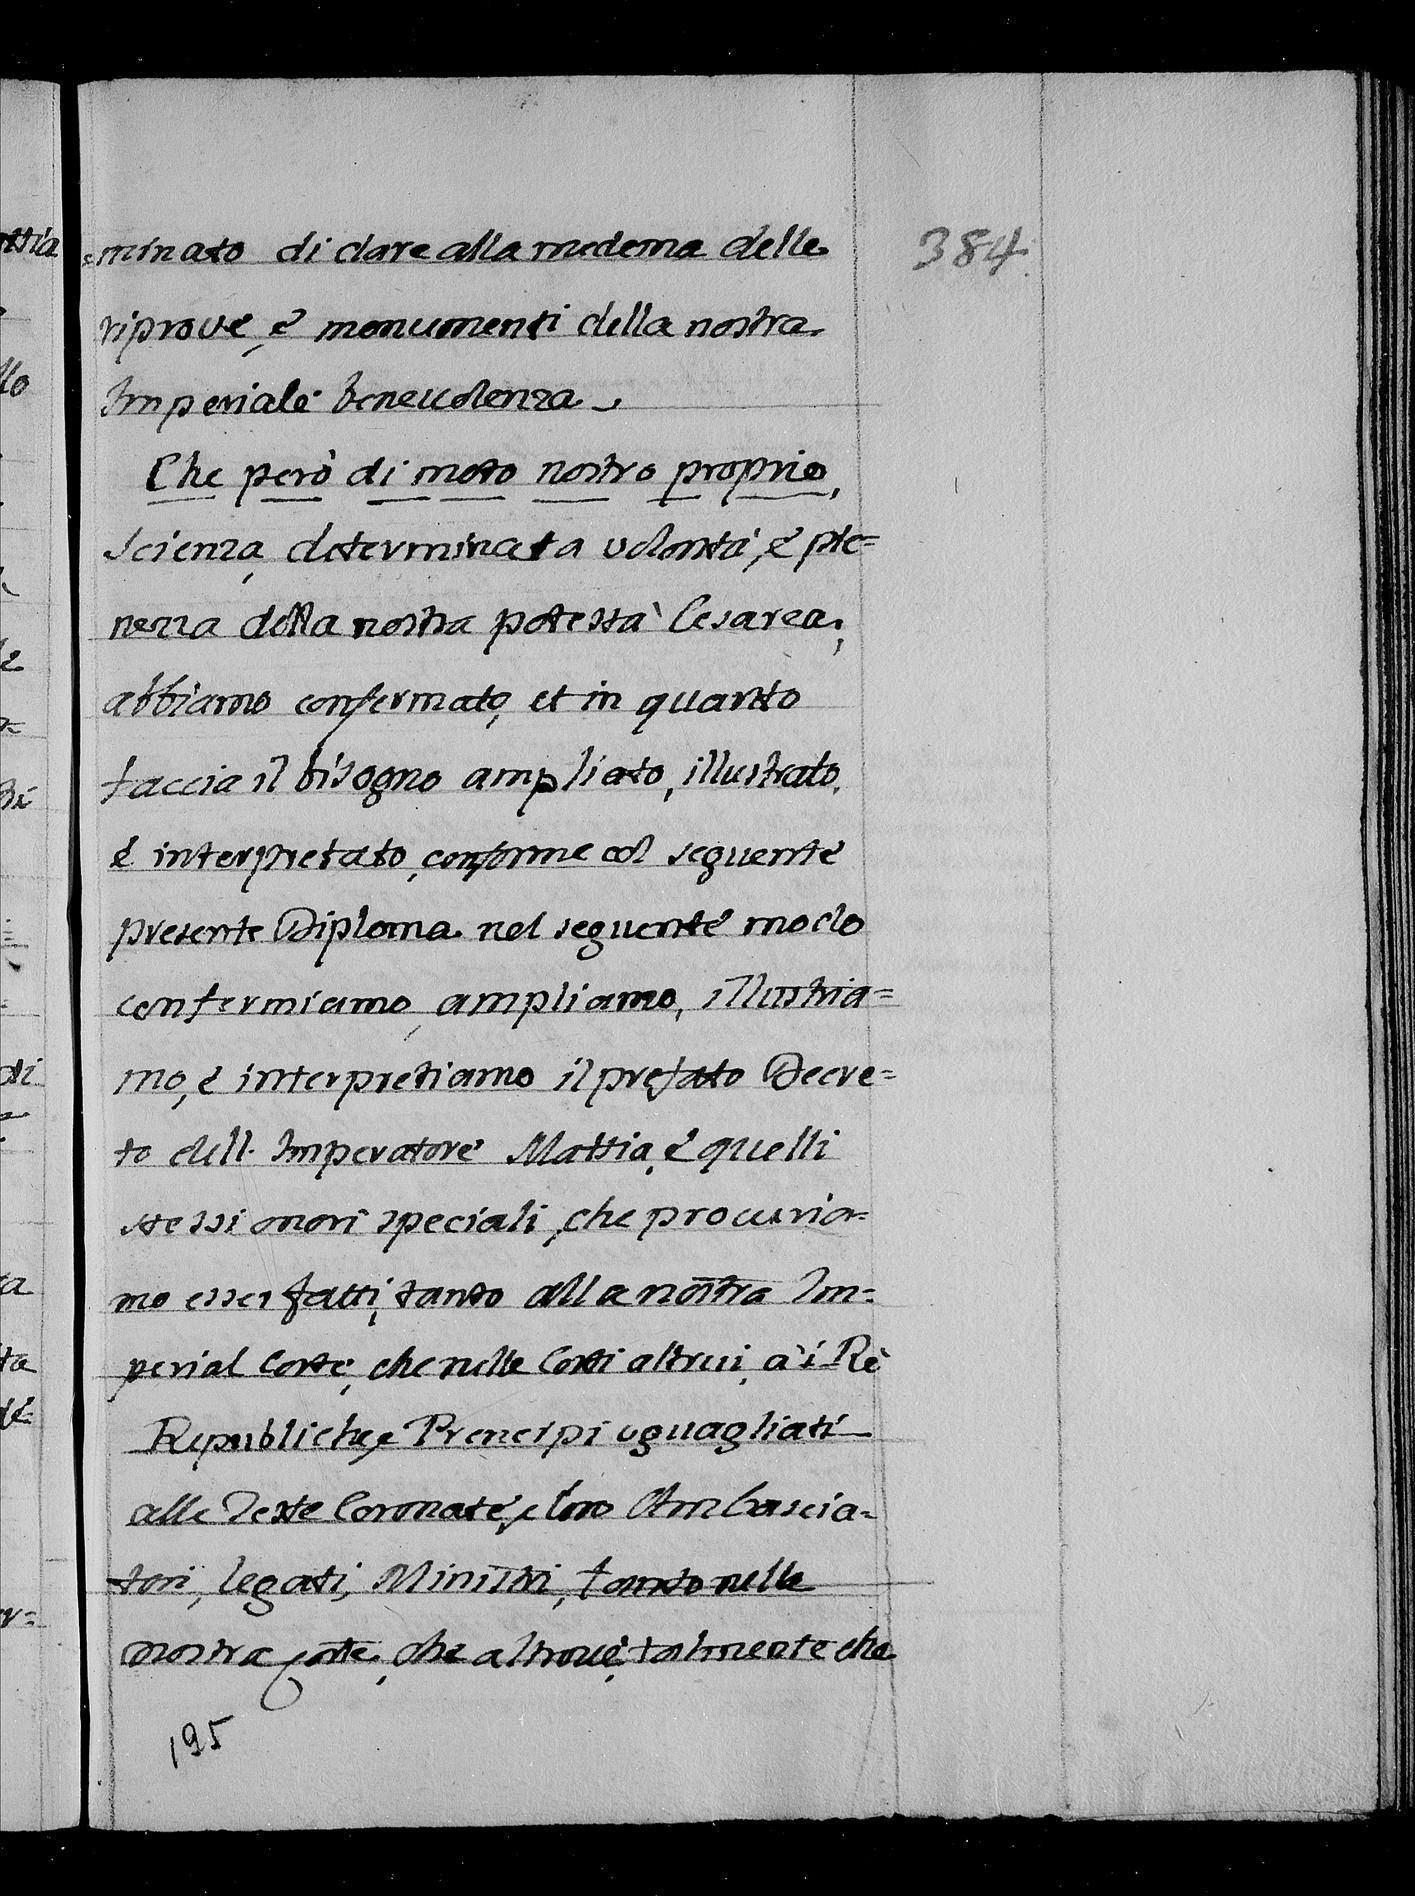 =minato di dare alla medema delle
384.
riprove, è monumenti della nostra
Imperiale benevolenza.
Che però di moto nostro proprio,
scienza, determinata volontà, è pie=
nezza della nostra potestà Cesarea,
abbiamo confermato, et in quanto
faccia il bisogno ampliato, illustrato,
è interpretato, conforme col seguente
presente Diploma nel seguente modo
confermiamo, ampliamo, illustria=
mo, è interpretiamo il prefato Decre=
to dell. Imperatore Mattia, è quelli
stessi onori speciali, che procuria=
mo esser fatti, tanto alla nostra Im=
perial Corte, che nelle Corti altrui, a'i Rè
Republiche, Prencipi uguagliati
alle Teste Coronate, e loro Ambascia=
tori, legati, Ministri, tanto nella
nostra Corte, che altrove, talmente che
195